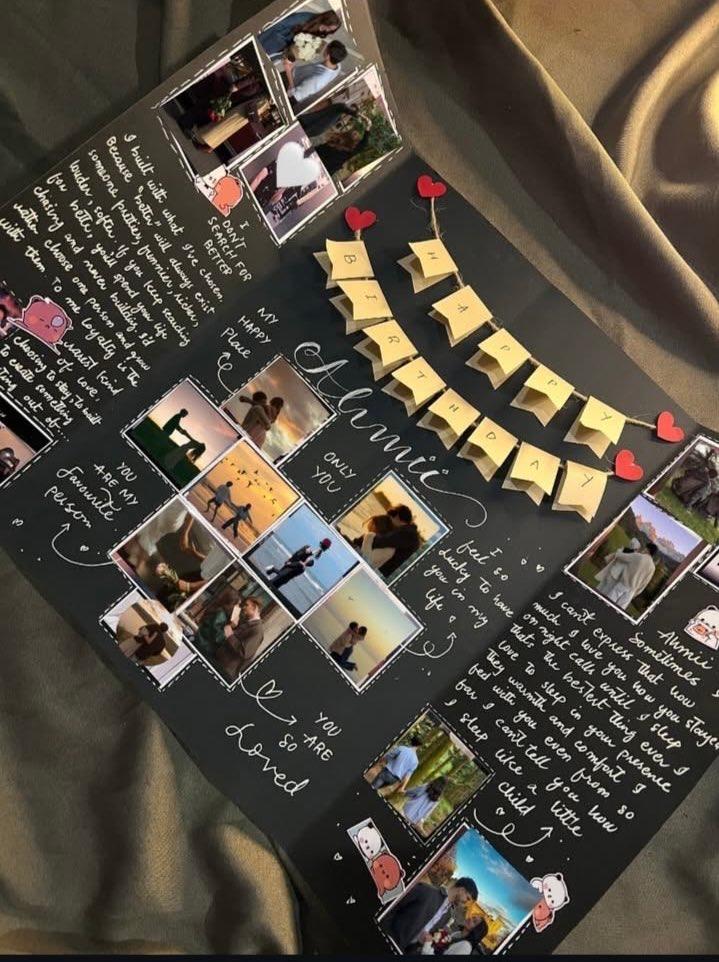 I
DON'T
SEARCH FOR
BETTER
I built with what I've chosen,
Because "better" will always exist
someone prettier, funnier, richer,
louder, softer. If you keep searching
for better, you'll spend your life
chasing and never building. I'd
rather choose one person and grow
with them. To me loyalty is the
rarest kind
of love,
choosing to stay, to
create something
out of
HAPPY
BIRTHDAY
MY
HAPPY
place
Ahmii
ONLY
YOU
YOU
ARE MY
favourite
person
I
feel so
lucky to have
you in my
life
YOU
ARE
SO
Loved
Ahmii
Sometimes
I can't express that how
much I love you how you stayed
on night calls until I sleep
that the bestest thing ever I
love to sleep in your presence
they warmth and comfort I
feel with you even from so
far I can't tell you how
I sleep like a little
child